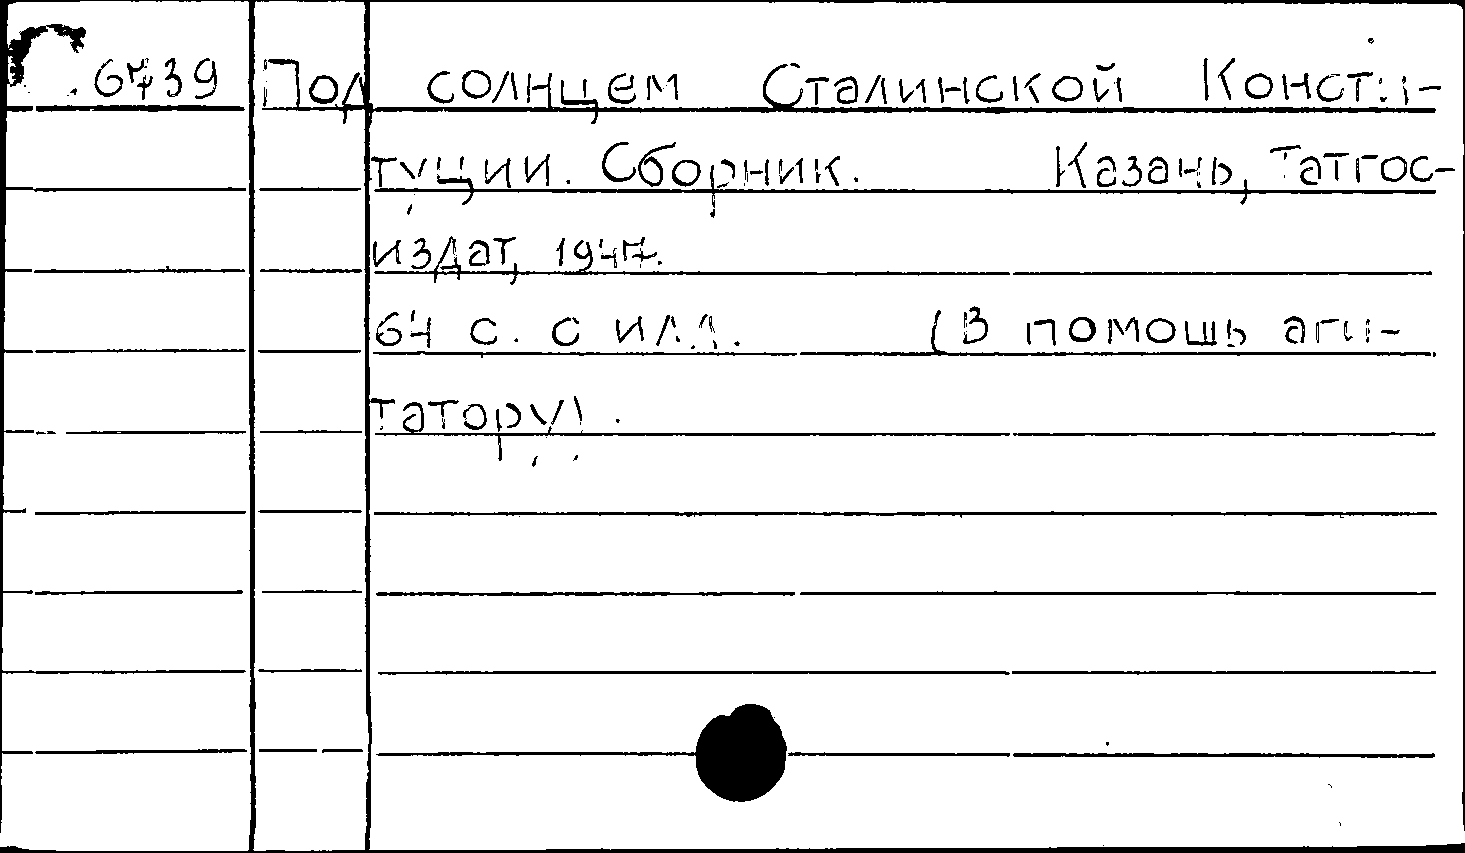 6739 Под солнцем Сталинской Консти-
туции. Сборник. Казань, Татгос-
издат, 1947.
64 с. с илл. (В помощь аги-
татору).